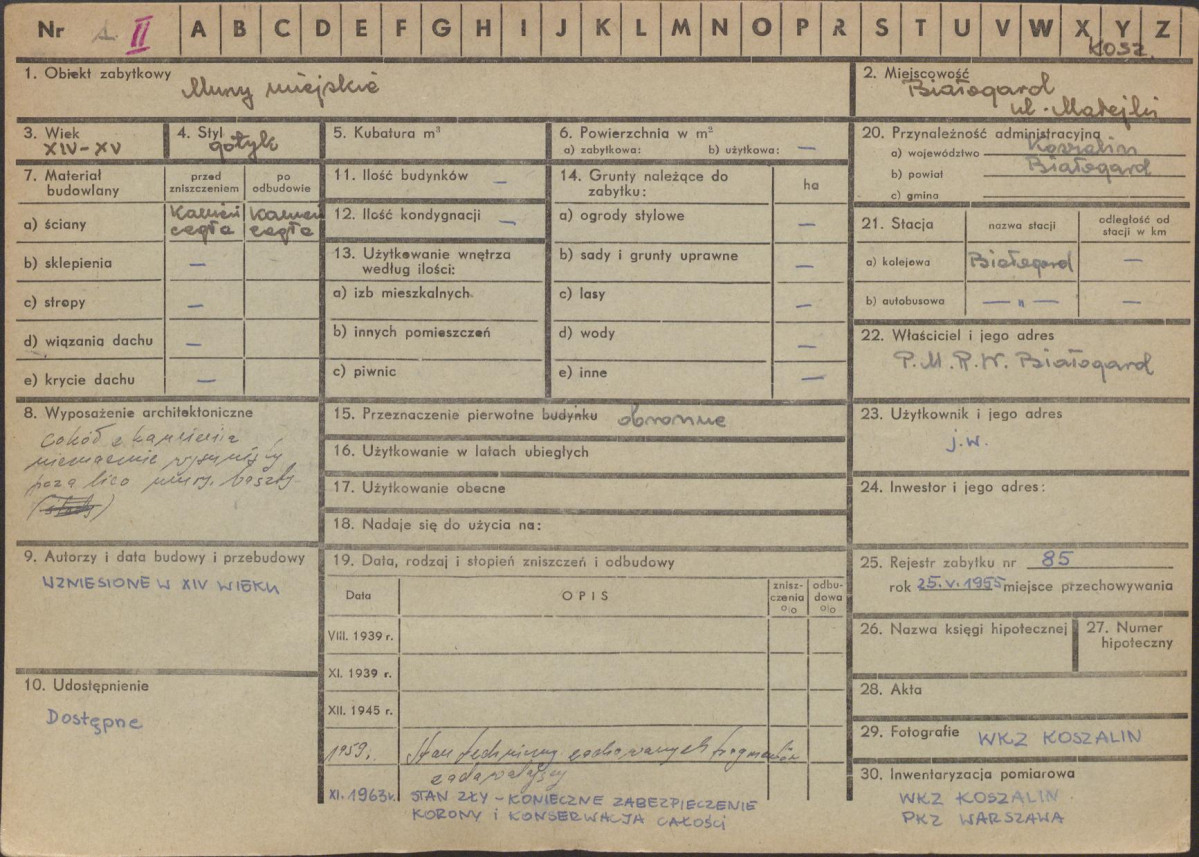 Nr II A B C D E F G H I J K L M N O P R S T U V W X Y Z
KOSZ.
1. Obiekt zabytkowy Mury miejskie
2. Miejscowość Białogard
ul. Matejki
3. Wiek
XIV-XV
4. Styl
gotyk
5. Kubatura m³
6. Powierzchnia w m²
a) zabytkowa: b) użytkowa: —
20. Przynależność administracyjna
a) województwo Koszalin
b) powiat Białogard
c) gmina
7. Materiał budowlany
przed zniszczeniem
po odbudowie
a) ściany Kamień cegła Kamień cegła
b) sklepienia —
c) stropy —
d) wiązania dachu —
e) krycie dachu —
11. Ilość budynków —
12. Ilość kondygnacji —
13. Użytkowanie wnętrza
według ilości:
a) izb mieszkalnych
b) innych pomieszczeń
c) piwnic
14. Grunty należące do
zabytku:
ha
a) ogrody stylowe —
b) sady i grunty uprawne —
c) lasy —
d) wody —
e) inne —
21. Stacja
nazwa stacji
odległość od
stacji w km
a) kolejowa Białogard —
b) autobusowa — „ — —
22. Właściciel i jego adres
P.M.R.N. Białogard
8. Wyposażenie architektoniczne
cokół z kamienia
nieznacznie wysunięty
poza lico muru, baszty
15. Przeznaczenie pierwotne budynku obronne
16. Użytkowanie w latach ubiegłych
17. Użytkowanie obecne
18. Nadaje się do użycia na:
23. Użytkownik i jego adres
j.w.
24. Inwestor i jego adres:
9. Autorzy i data budowy i przebudowy
WZNIESIONE W XIV WIEKU
10. Udostępnienie
Dostępne
19. Data, rodzaj i stopień zniszczeń i odbudowy
Data OPIS
znisz-
czenia
%
odbu-
dowa
%
VIII. 1939 r.
XI. 1939 r.
XII. 1945 r.
1959r. Stan techniczny zachowanych fragmentów
zadawalający
XI.1963r. STAN ZŁY - KONIECZNE ZABEZPIECZENIE
KORONY I KONSERWACJA CAŁOŚCI
25. Rejestr zabytku nr 85
rok 25.V.1955 miejsce przechowywania
26. Nazwa księgi hipotecznej
27. Numer
hipoteczny
28. Akta
29. Fotografie WKZ KOSZALIN
30. Inwentaryzacja pomiarowa
WKZ KOSZALIN
PKZ WARSZAWA